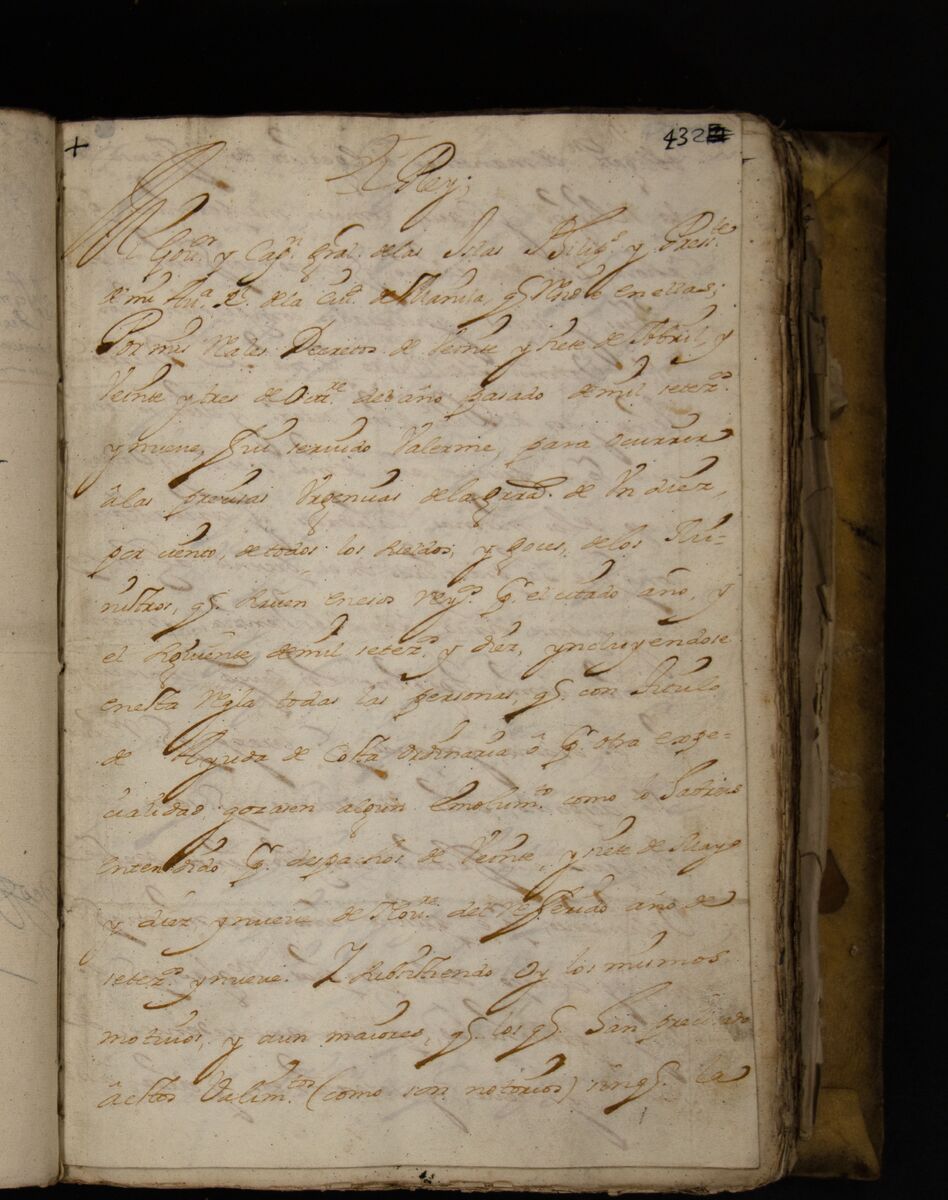 +
432
El Rey;
Mi Gov.or y Cap.n Gral. de las Islas Philip.s y Presi.te
de mi Aud.a R.l de la Ciu.d de Manila, q.e reside en ellas;
Por mis reales Decretos de Veinte y siete de Abril, y
Veinte y tres de Octu.re del año pasado de mil setez.os
y nueve, fui servido Valerme, para ocurrir
â las precisas Urgencias de la guerra de Un diez,
por ciento, de todos los sueldos, y goces, de los Mi-
nistros, q.e sirven en esos rey.os p.r el citado año, y
el siguiente de mil setez.os y diez, yncluyendose
en esta regla todas las personas, q.e con titulo
de Ayuda de Costa ordinaria, ô p.r otra espe-
cialidad gozasen algun Emolum.to como lo habreis
entendido p.r despachos de Veinte, y siete de Mayo
y diez y nueve de Nov.re del referido año de
setez.os y nueve. Y subsistiendo oy los mismos
motivos, y aun maiores, q.e los q.e han precisado
â estos Valim.tos (como son notorios) sin q.e la